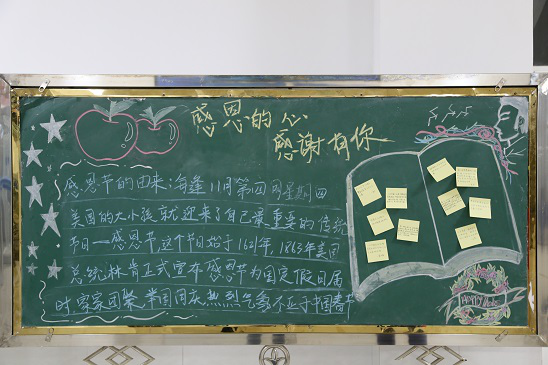 感恩的心
感谢有你
感恩节的由来：每逢11月第四个星期四
美国的大小孩就迎来了自己最重要的传统
节日—感恩节，这个节始于1621年，1863年美国
总统林肯正式宣布感恩节为国定假日届
时，家家团聚，举国同庆，热烈气氛不亚于中国春节